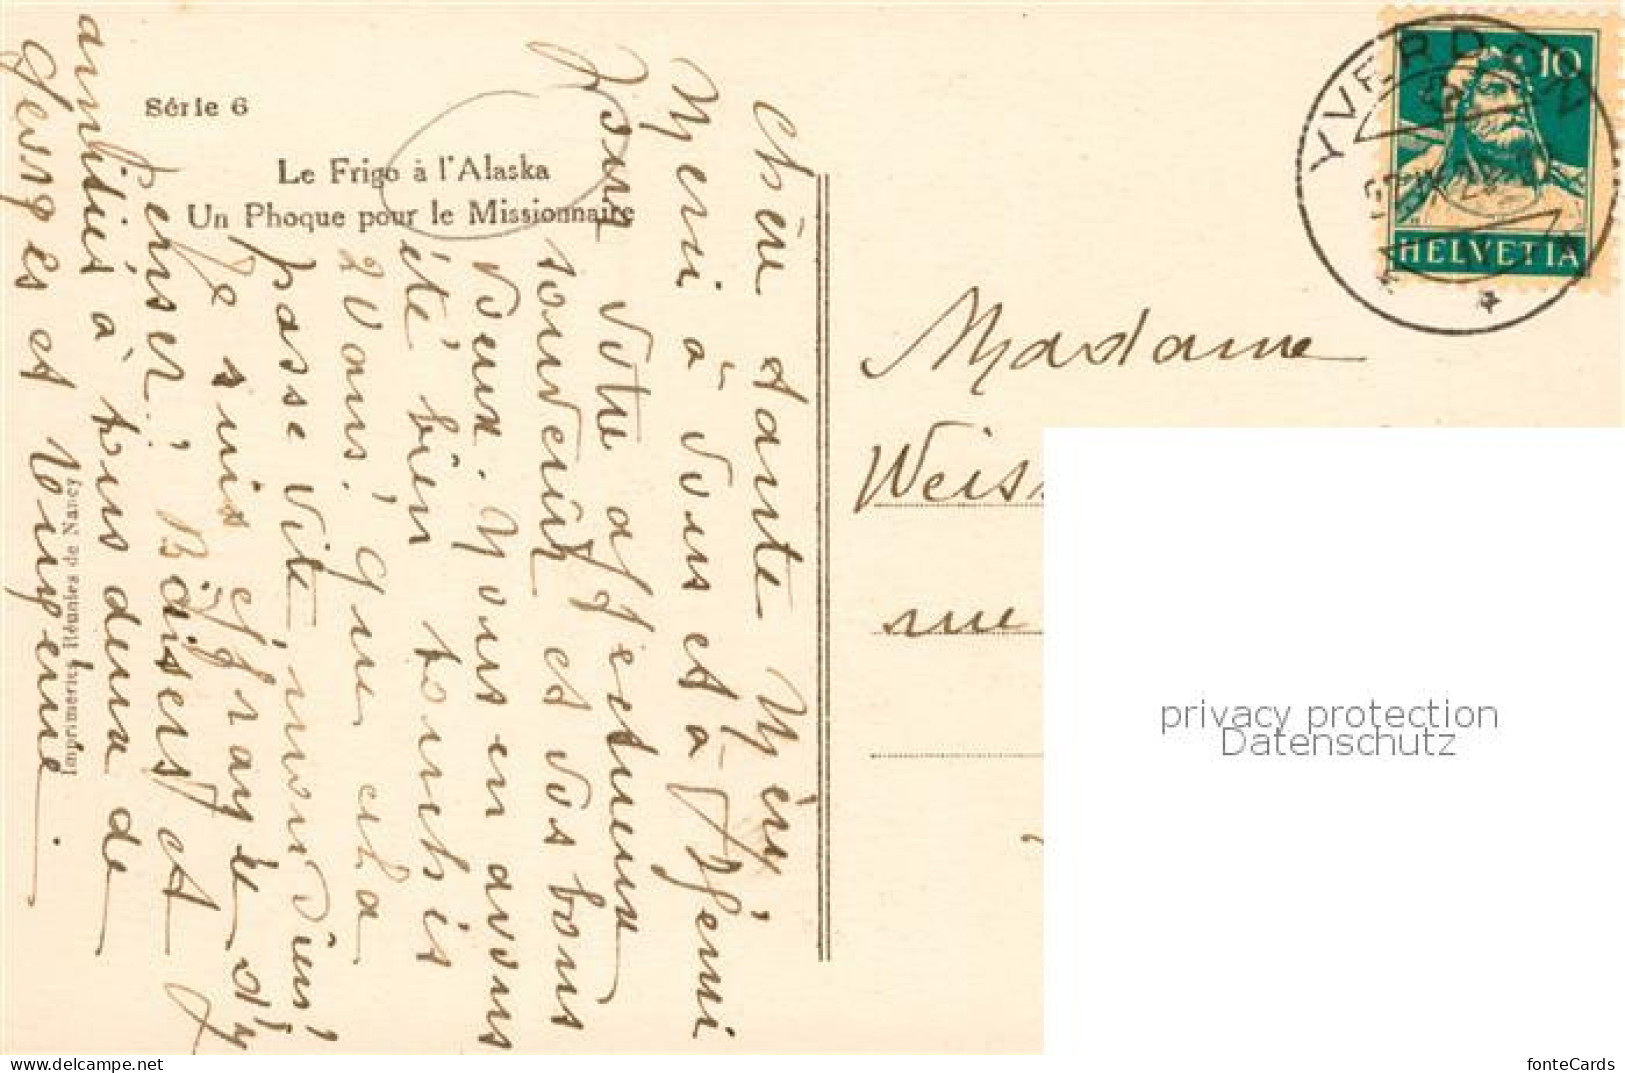 Série 6
Le Frigo à l'Alaska
Un Phoque pour le Missionnaire
Imprimeries Réunies de Nancy
Chère tante Méry
Merci à vous et à Jenni
pour votre affectueux
souvenir et vos bons
vœux. Nous en avons
été bien touchés
2 Vons! Que cela
passe vite, mon Dieu!
Je suis effrayée d'y
penser! Baisers et
amitiés à tous deux de
Georges et
YVERDON
10
HELVETIA
Madame
Weiss
rue
privacy protection
Datenschutz
www.delcampe.net
fonteCards